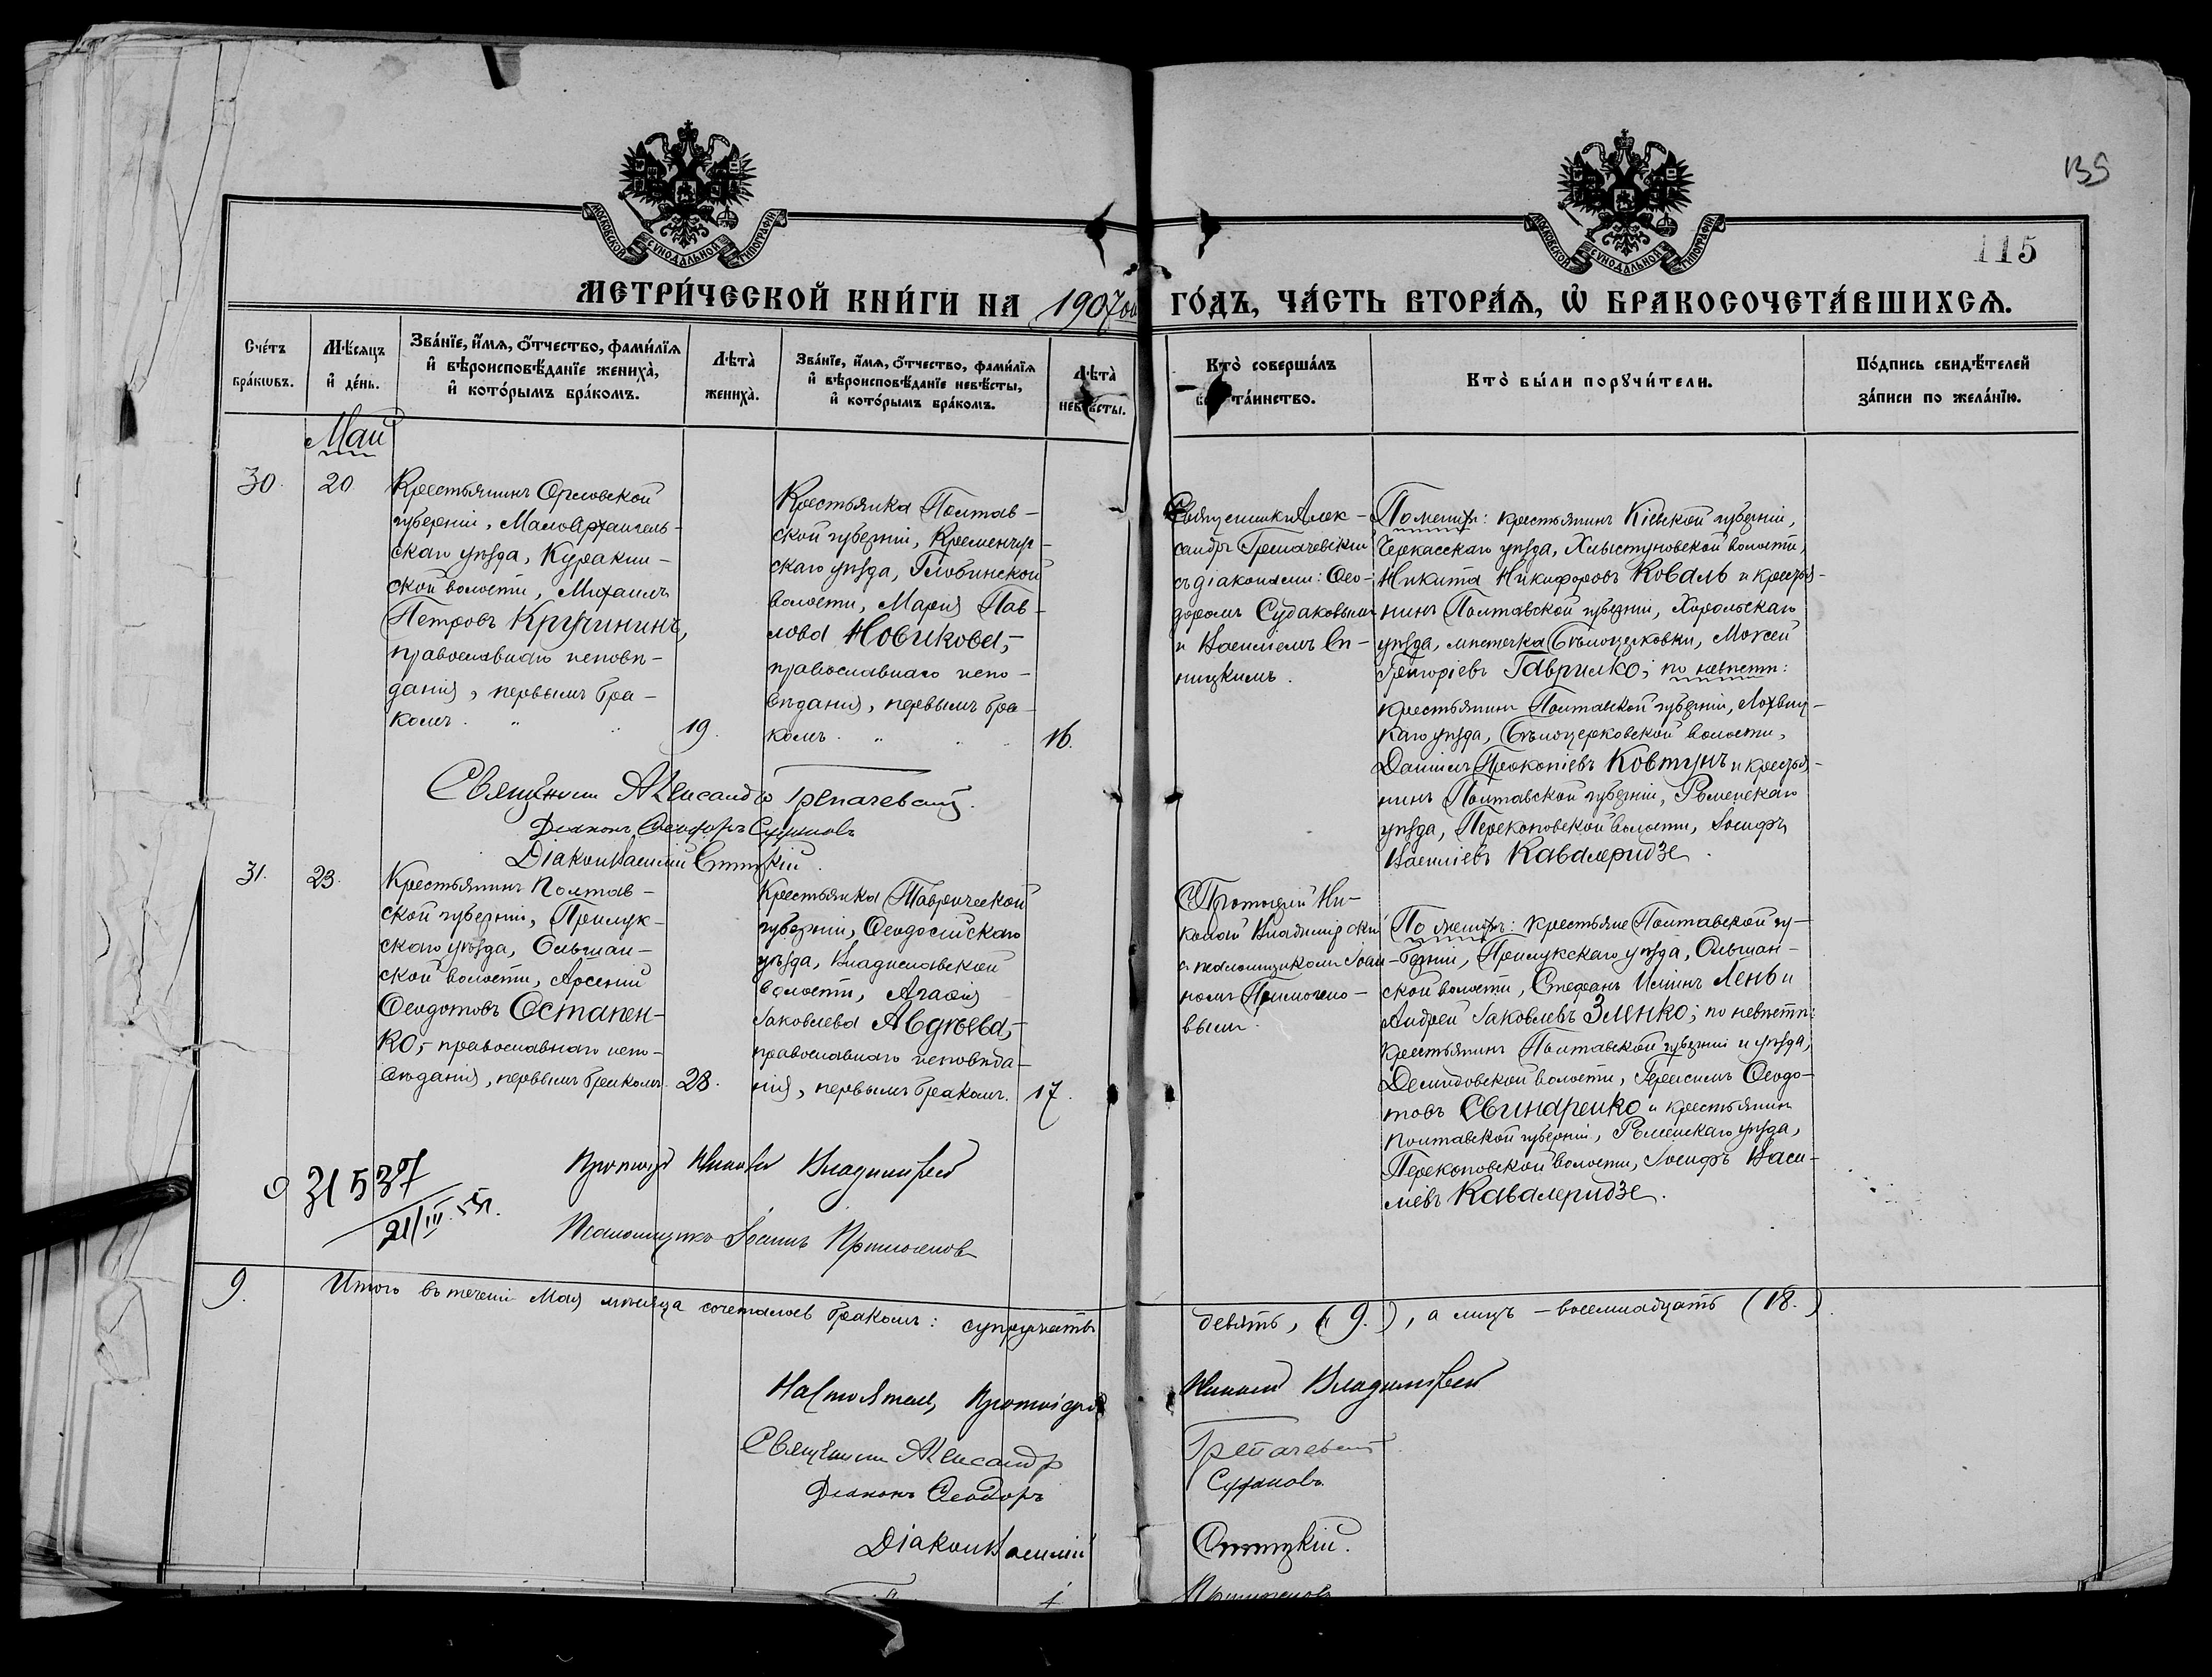 135
115
МОСКОВСКОЙ СѴНОДАЛЬНОЙ ТИПОГРАФІИ
МОСКОВСКОЙ СѴНОДАЛЬНОЙ ТИПОГРАФІИ
МЕТРИ́ЧЕСКОЙ КНИ́ГИ НА 1907ой ГО́ДЪ, ЧА́СТЬ ВТОРА́Я, Ѡ҆ БРАКОСОЧЕТА́ВШИХСЯ.
Сче́тъ
бра́кωвъ.
Мѣ́сяцъ
и҆ де́нь.
Зва́нїе, и҆́мя, о҆́тчество, фами́лїя
и҆ вѣроисповѣ́данїе жениха̀,
и҆ кото́рымъ бра́комъ.
Лѣта̀
жениха̀.
Зва́нїе, и҆́мя, о҆́тчество, фами́лїя
и҆ вѣроисповѣ́данїе невѣ́сты,
и҆ кото́рымъ бра́комъ.
Лѣта̀
невѣ́сты.
Кто̀ соверша́лъ
та́инство.
Кто̀ бы́ли порꙋчи́тели.
По́дпись свидѣ́телей
за́писи по жела́нїю.
Май
30.
20
Крестьянинъ Орловской
губерніи, Малоархангель-
скаго уѣзда, Куракин-
ской волости, Михаилъ
Петровъ Кручининъ,
православнаго исповѣ-
данія, первымъ бра-
комъ. " "
19.
Крестьянка Полтав-
ской губерніи, Кременчуг-
скаго уѣзда, Глобинской
волости, Марія Пав-
лова Новикова,-
православнаго испо-
вѣданія, первымъ бра-
комъ. " " "
16.
Священникъ Алек-
сандръ Грепачевскій
съ діаконами: Ѳео-
доромъ Судаковымъ
и Василіемъ Сп-
ницкимъ.
По женихѣ: крестьянинъ Кіевской губерніи,
Черкасскаго уѣзда, Хлыстуновской волости,
Никита Никифоровъ Коваль и крестья-
нинъ Полтавской губерніи, Хорольскаго
уѣзда, мѣстечка Бѣлоцерковки, Моисей
Григоріевъ Гаврилко; по невѣстѣ:
крестьянинъ Полтавской губерніи, Лохвиц-
каго уѣзда, Бѣлоцерковской волости,
Даніилъ Прокопіевъ Ковтунъ и крестья-
нинъ Полтавской губерніи, Роменскаго
уѣзда, Перекоповской волости, Іосифъ
Василіевъ Кавалеридзе.
Священникъ Александръ Грепачевскій.
Діаконъ Ѳеодоръ Судаковъ
Діаконъ Василій
31.
23.
Крестьянинъ Полтав-
ской губерніи, Прилук-
скаго уѣзда, Ольшан-
ской волости, Арсеній
Ѳеодотовъ Остапен-
ко,- православнаго испо-
вѣданія, первымъ бракомъ.
28.
Крестьянка Таврической
губерніи, Ѳеодосійскаго
уѣзда, Владиславской
волости, Агаѳія
Іаковлева Авдѣева,-
православнаго исповѣда-
нія, первымъ бракомъ.
17.
Протоіерей Ни-
колай Владимірскій
съ псаломщикомъ Іоан-
номъ Примогено-
вымъ.
По женихѣ: крестьяне Полтавской гу-
берніи, Прилукскаго уѣзда, Ольшан-
ской волости, Стефанъ Ильинъ Лень и
Андрей Іаковлевъ Зленко; по невѣстѣ:
крестьянинъ Полтавской губерніи и уѣзда,
Демидовской волости, Герасимъ Ѳеодо-
товъ Свинаренко и крестьянинъ
Полтавской губерніи, Роменскаго уѣзда,
Перекоповской волости, Іосифъ Васи-
ліевъ Кавалеридзе.
Протоіер Николай Владимірскій
Псаломщикъ Іоаннъ Примогеновъ
31537
21/III.
9.
Итого въ теченіи Мая мѣсяца сочеталось бракомъ: супружествъ девять, (9.), а лицъ – восемнадцать (18.).
Настоятель, Протоіерей Николай Владимірскій
Священникъ Александръ Грепачевскій.
Діаконъ Ѳеодоръ Судаковъ
Діаконъ Василій